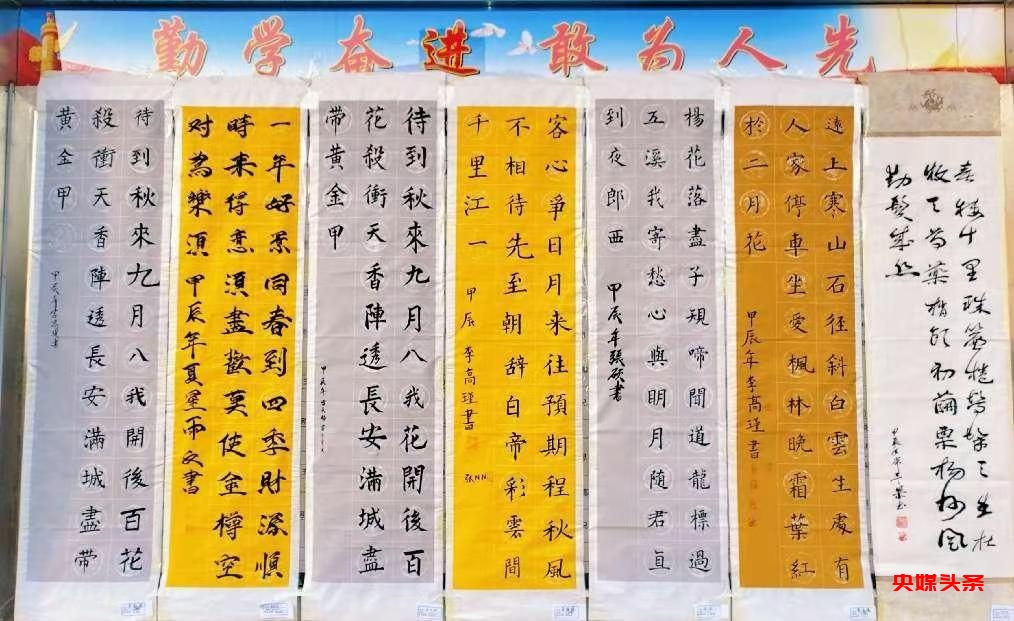 勤学奋进 敢为人先
十里珠簾捲髣髴三生杜
牧之芍藥梢頭初繭栗楊州風
物鬓成絲
遠上寒山石径斜白雲生處有
人家停車坐愛楓林晚霜葉紅
於二月花
甲辰年李高瑾書
揚花落盡子規啼聞道龍標過
五溪我寄愁心與明月随君直
到夜郎西
甲辰年張硕書
客心爭日月来往預期程秋風
不相待先至朝辞白帝彩雲間
千里江一
甲辰 李高瑾書
待到秋來九月八我花開後百
花殺衝天香陣透長安满城盡
带黄金甲
一年好景同春到四季財源順
時来得意須盡歡莫使金樽空
对爲樂須 甲辰年夏星雨文書
待到秋來九月八我開後百花
殺衝天香陣透長安滿城盡带
黄金甲
央媒头条